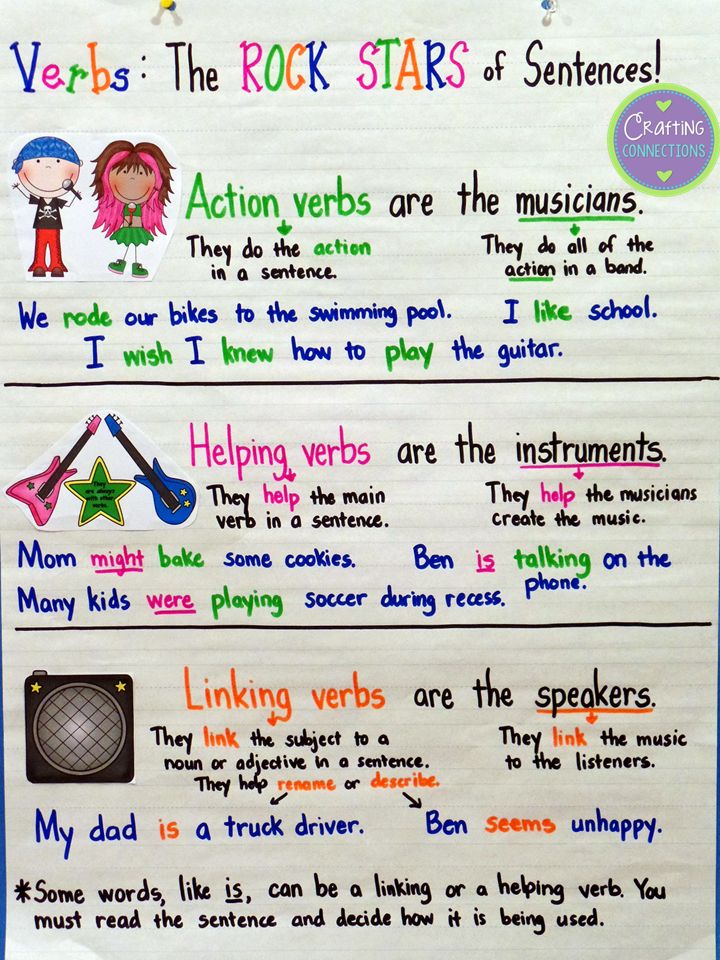 Verbs: The ROCK STARS of Sentences!
Crafting
CONNECTIONS
Action verbs are the musicians.
They do the action
in a sentence.
They do all of the
action in a band.
We rode our bikes to the swimming pool. I like school.
I wish I knew how to play the guitar.
Helping verbs are the instruments.
They
are always
with other
verbs.
They help the main
verb in a sentence.
They help the musicians
create the music.
Mom might bake some cookies. Ben is talking on the
phone.
Many kids were playing soccer during recess.
Linking verbs are the speakers.
They link the subject to a
noun or adjective in a sentence.
They help rename or describe.
They link the music
to the listeners.
My dad is a truck driver. Ben seems unhappy.
*Some words, like is, can be a linking or a helping verb. You
must read the sentence and decide how it is being used.